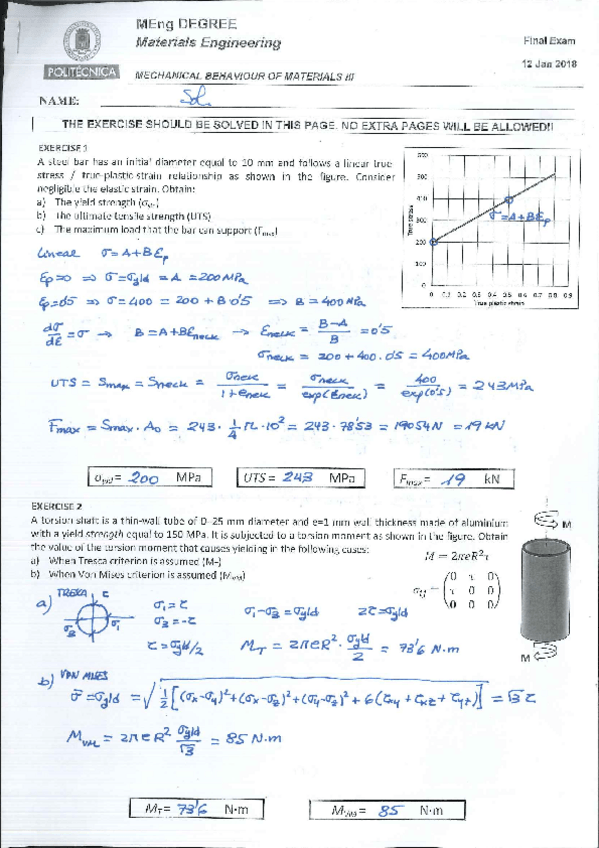 MEng DEGREE
Materials Engineering
Final Exam
12 Jan 2018
POLITÉCNICA
MECHANICAL BEHAVIOUR OF MATERIALS III
NAME:
Sol.
THE EXERCISE SHOULD BE SOLVED IN THIS PAGE. NO EXTRA PAGES WILL BE ALLOWED!!
EXERCISE 1
A steel bar has an initial diameter equal to 10 mm and follows a linear true-
stress / true-plastic-strain relationship as shown in the figure. Consider
negligible the elastic strain. Obtain:
a) The yield strength (σyld)
b) The ultimate tensile strength (UTS)
c) The maximum load that the bar can support (Fmax)
600
500
400
300
200
100
0
True stress
σ=A+Bεp
0 0.1 0.2 0.3 0.4 0.5 0.6 0.7 0.8 0.9
True plastic strain
Lineal σ=A+Bεp
εp=0 ⇒ σ=σyld=A=200MPa
εp=0'5 ⇒ σ=400=200+B·0'5 ⇒ B=400MPa
dσ/dε=σ → B=A+Bεneck → εneck=(B-A)/B=0'5
σneck=200+400·0'5=400MPa
UTS=Smax=Sneck=σneck/(1+eneck)=σneck/exp(εneck)=400/exp(0'5)=243MPa
Fmax=Smax·A0=243·1/4π·10²=243·78'53=19054N=19kN
σyld= 200 MPa UTS= 243 MPa Fmax= 19 kN
EXERCISE 2
A torsion shaft is a thin-wall tube of D=25 mm diameter and e=1 mm wall thickness made of aluminium
with a yield strength equal to 150 MPa. It is subjected to a torsion moment as shown in the figure. Obtain
the value of the torsion moment that causes yielding in the following cases:
a) When Tresca criterion is assumed (MT)
b) When Von Mises criterion is assumed (MVM)
M = 2πeR²τ
σij = (0 τ 0
τ 0 0
0 0 0)
M
M
a) TRESCA τ
σ3 σ1
σ1=τ
σ3=-τ
σ1-σ3=σyld 2τ=σyld
τ=σyld/2 MT=2πeR²·σyld/2=73'6 N·m
b) VON MISES
σ̄=σyld=√(1/2[(σx-σy)²+(σx-σz)²+(σy-σz)²+6(τxy+τxz+τyz)])=√3τ
MVM=2πeR² σyld/√3=85 N·m
MT= 73'6 N·m MVM= 85 N·m